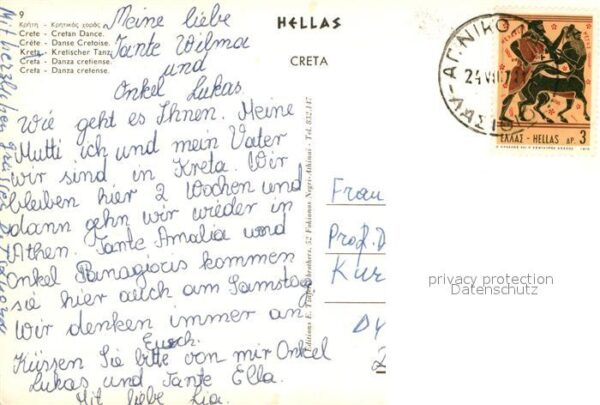 9
Κρήτη - Κρητικός χορός
Crete - Cretan Dance.
Crète - Danse Cretoise.
Kreta - Kretischer Tanz
Creta - Danza cretense.
Creta - Danza cretense.
HELLAS
CRETA
Meine liebe
Tante Wilma
und
Onkel Lukas.
Wie geht es Ihnen. Meine
Mutti ich und mein Vater
wir sind in Kreta. Wir
bleiben hier 2 Wochen und
dann gehn wir wieder in
Athen. Tante Amalia und
Onkel Panagiotis kommen
sie hier auch am Samstag
wir denken immer an
Euch.
Küssen Sie bitte von mir Onkel
Lukas und Tante Ella.
Mit liebe Lia.
Mit herzlichen Grüßen
Tel. 832.147
24 VII 7
ΕΛΛΑΣ - HELLAS ΔΡ. 3
Frau
Prof. D
Kur
privacy protection
Datenschutz